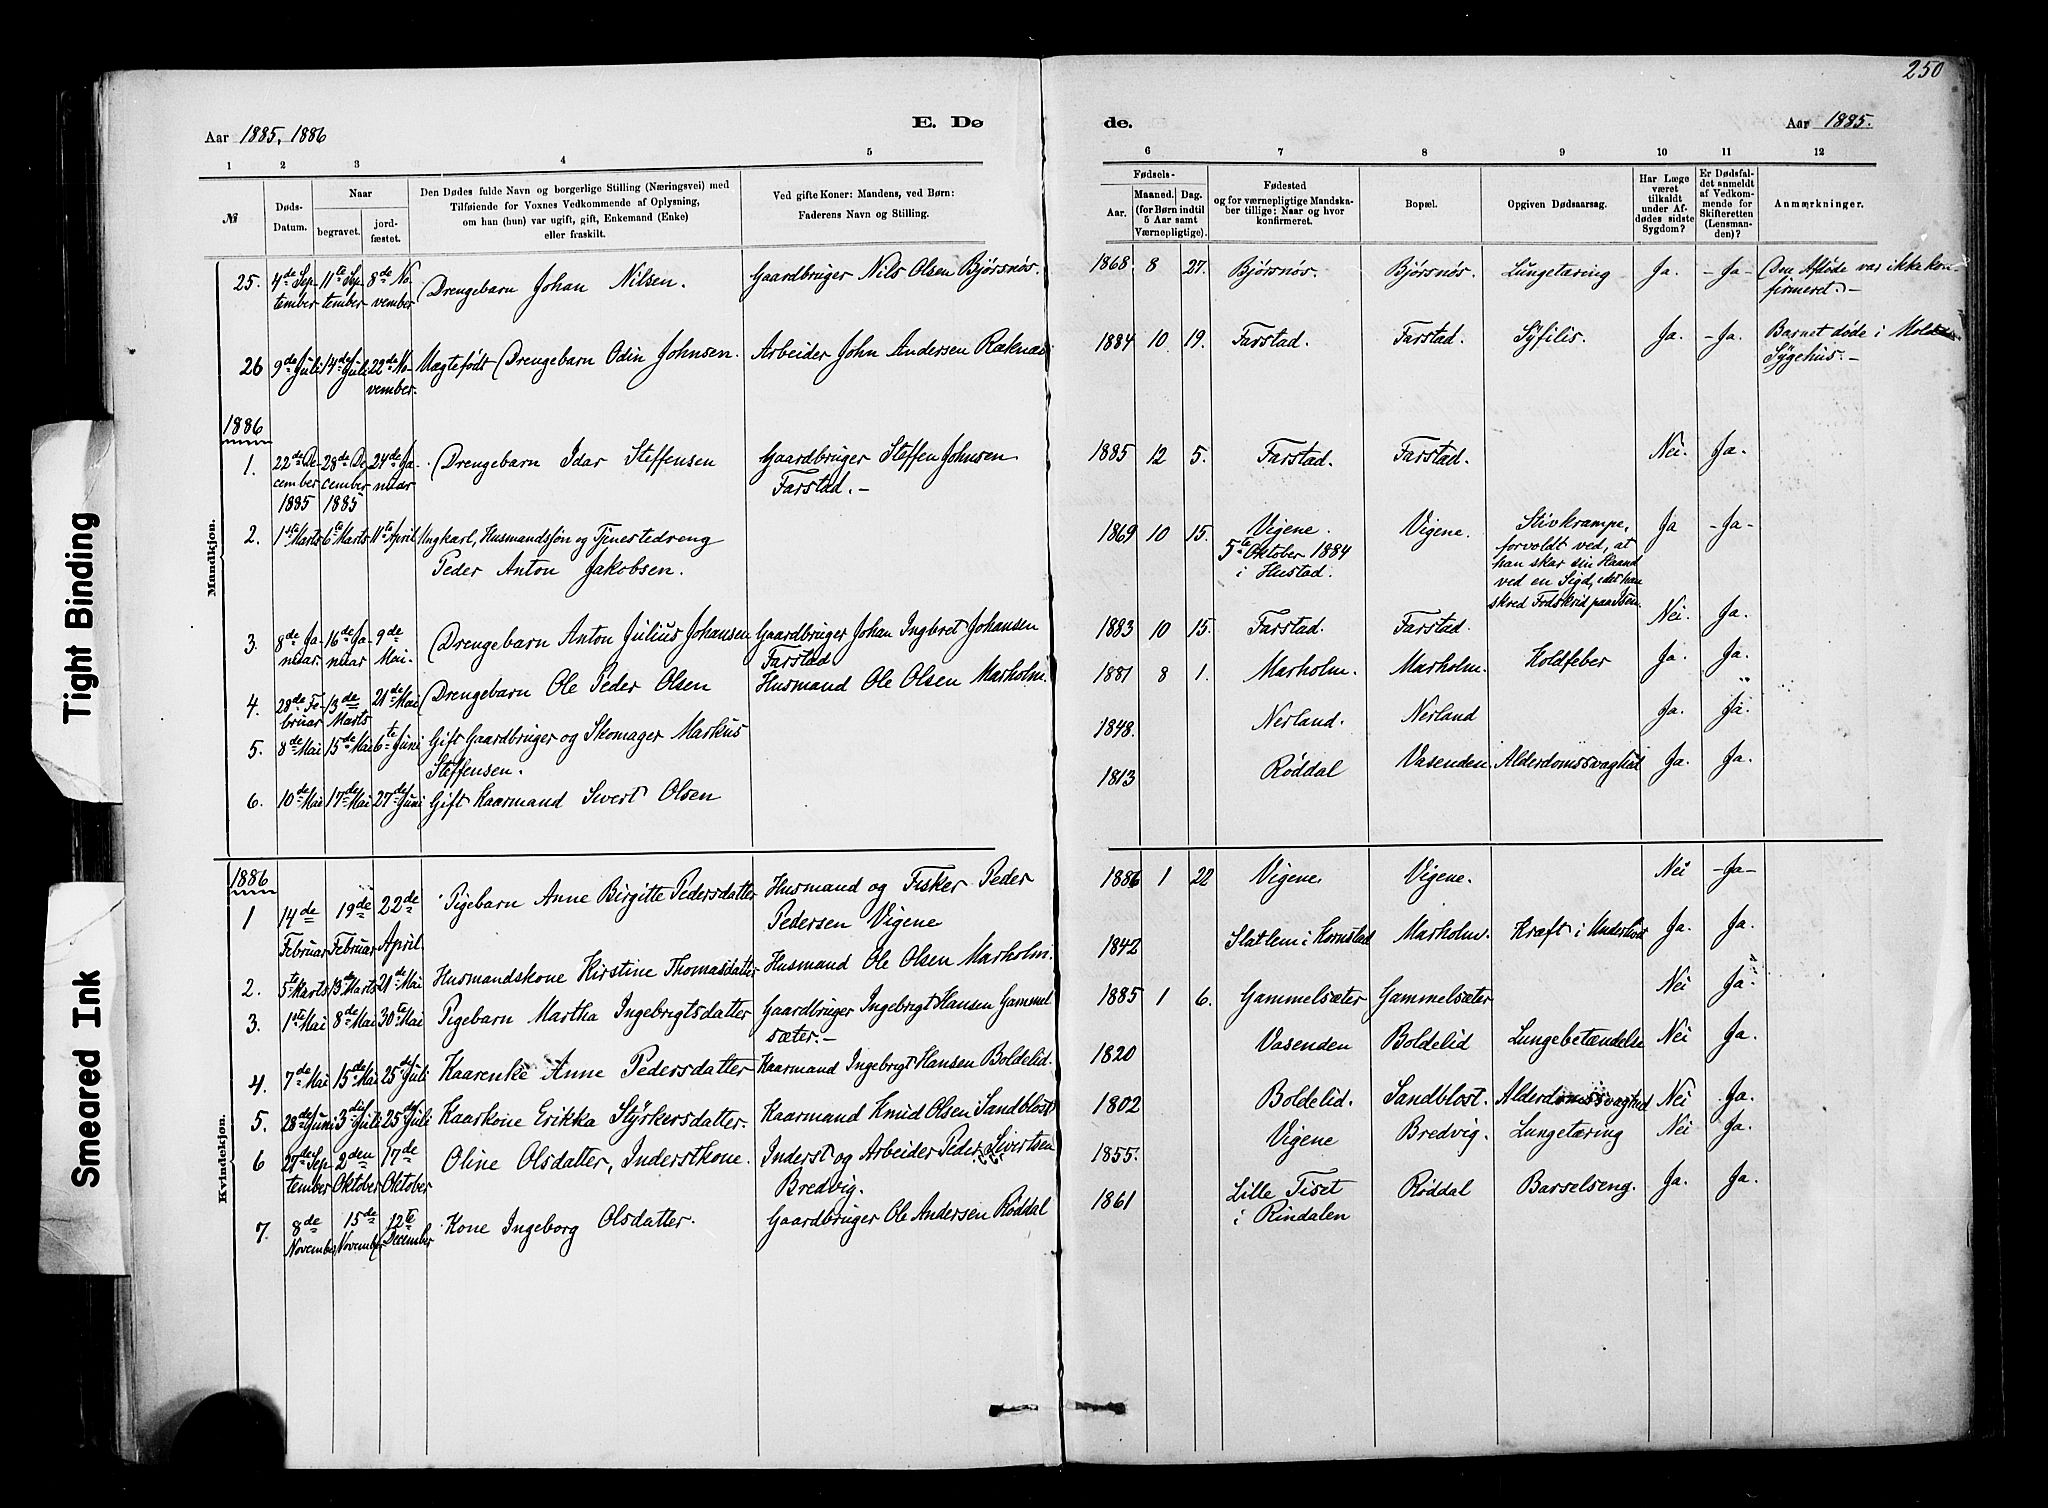 250
Aar 1885, 1886
E. Dø
de.
Aar 1885.
1 2 3 4 5 6 7 8 9 10 11 12
№
Døds-
Datum.
Naar
begravet.
jord-
fæstet.
Den Dødes fulde Navn og borgerlige Stilling (Næringsvei) med
Tilføiende for Voxnes Vedkommende af Oplysning,
om han (hun) var ugift, gift, Enkemand (Enke)
eller fraskilt.
Ved gifte Koner: Mandens, ved Børn:
Faderens Navn og Stilling.
Fødsels-
Aar.
Maaned. Dag.
(for Børn indtil
5 Aar samt
Værnepligtige).
Fødested
og for værnepligtige Mandska-
ber tillige: Naar og hvor
konfirmeret.
Bopæl.
Opgiven Dødsaarsag.
Har Læge
været
tilkaldt
under Af-
dødes sidste
Sygdom?
Er Dødsfal-
det anmeldt
af Vedkom-
mende for
Skifteretten
(Lensman-
den)?
Anmærkninger.
Mandkjøn.
25. 4de Sep- 11te Sep- 8de No- Drengebarn Johan Nilsen. Gaardbruger Nils Olsen Bjørsnøs. 1868 8 27. Bjørsnøs. Bjørsnøs. Lungetæring Ja. - Ja - Den Afdøde var ikke kon-
tember tember vember firmeret. -
26 9de Juli 14de Juli 22de No- Uægtefödt Drengebarn Odin Johnsen. Arbeider John Andersen Raknæs 1884 10 19. Farstad. Farstad. Syfilis. Ja. - Ja. Barnet døde i Molde
vember. Sygehus. -
1886
1. 22de De- 28de De- 24de Ja- Drengebarn Idar Steffensen Gaardbruger Steffen Johnsen 1885 12 5. Farstad. Farstad. Nei. Ja.
cember cember nuar Farstad. -
1885 1885
2. 1ste Marts 6te Marts 11te April Ungkarl, Husmandssøn og Tjenestedreng 1869 10 15. Vigene. Vigene. Stivkrampe, Ja - Ja -
Peder Anton Jakobsen. 5te Oktober 1884 forvoldt ved, at
i Hustad. han skar sin Haand
ved en Sigd, idet han
skred Fodskrid paa Isen.
3. 8de Ja- 16de Ja- 9de Drengebarn Anton Julius Johansen Gaardbruger Johan Ingbret Johansen 1883 10 15. Farstad. Farstad. Nei. Ja.
nuar nuar Mai. Farstad
4. 28de Fe- 13de 21de Mai Drengebarn Ole Peder Olsen Husmand Ole Olsen Marholm. 1881 8 1. Marholm. Marholm. Koldfeber Ja. Ja.
bruar Marts
5. 8de Mai 15de Mai 6te Juni Gift Gaardbruger og Skomager Markus 1848. Nerland. Nerland Ja. Ja.
Steffensen.
6. 10de Mai 17de Mai 27de Juni Gift Kaarmand Sivert Olsen 1813 Røddal Vasenden. Alderdomssvaghed Ja. Ja.
Kvindekjøn.
1886
1 14de 19de 22de Pigebarn Anne Birgitte Pedersdatter Husmand og Fisker Peder 1886 1 22 Vigene. Vigene. Nei - Ja -
Februar Februar April Pedersen Vigene
2. 5te Marts 13de Marts 21de Mai Husmandskone Kirstine Thomasdatter Husmand Ole Olsen Marholm. 1842 Slatlem i Kornstad Marholm. Kræft i Underlivet Ja. Ja.
3. 1ste Mai 8de Mai 30te Mai Pigebarn Martha Ingebrigtsdatter Gaardbruger Ingebrigt Hansen Gammel 1885 1 6. Gammelsæter Gammelsæter Nei Ja.
sæter. -
4. 7de Mai 15de Mai 25de Juli Kaarenke Anne Pedersdatter Kaarmand Ingebrigt Hansen Boldelid. 1820 Vasenden Boldelid Lungebetændelse Nei Ja.
5. 28de Juni 3die Juli 25de Juli Kaarkone Erikka Styrkersdatter. Kaarmand Knud Olsen Sandblost 1802 Boldelid. Sandblost. Alderdomssvaghed Nei Ja.
6 27de Sep- 2den 17de Oline Olsdatter, Inderstkone. Inderst og Arbeider Peder Sivertsen 1855. Vigene Bredvig. Lungetæring Nei Ja.
tember Oktober Oktober Bredvig.
7. 8de 15de 12te Kone Ingeborg Olsdatter. Gaardbruger Ole Andersen Røddal 1861 Lille Tiset Røddal Barselseng. Ja. Ja.
November November December i Rindalen
Tight Binding
Smeared Ink